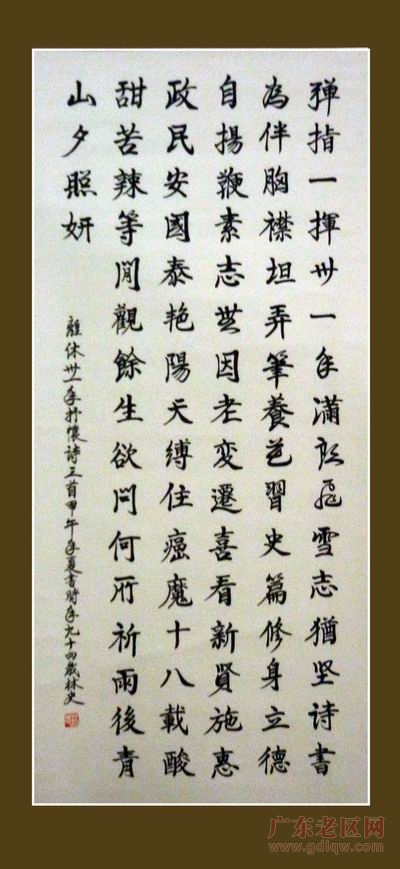 彈指一揮卅一年滿頭飛雪志猶坚詩書
為伴胸襟坦弄筆養花習史篇修身立德
自揚鞭素志無因老变遷喜看新賢施惠
政民安國泰艳陽天縛住癌魔十八載酸
甜苦辣等閒觀餘生欲问何所祈雨後青
山夕照妍
離休卅一年抒懷詩三首甲午年夏書時年九十四歲林史
广东老区网
www.gdlqw.com